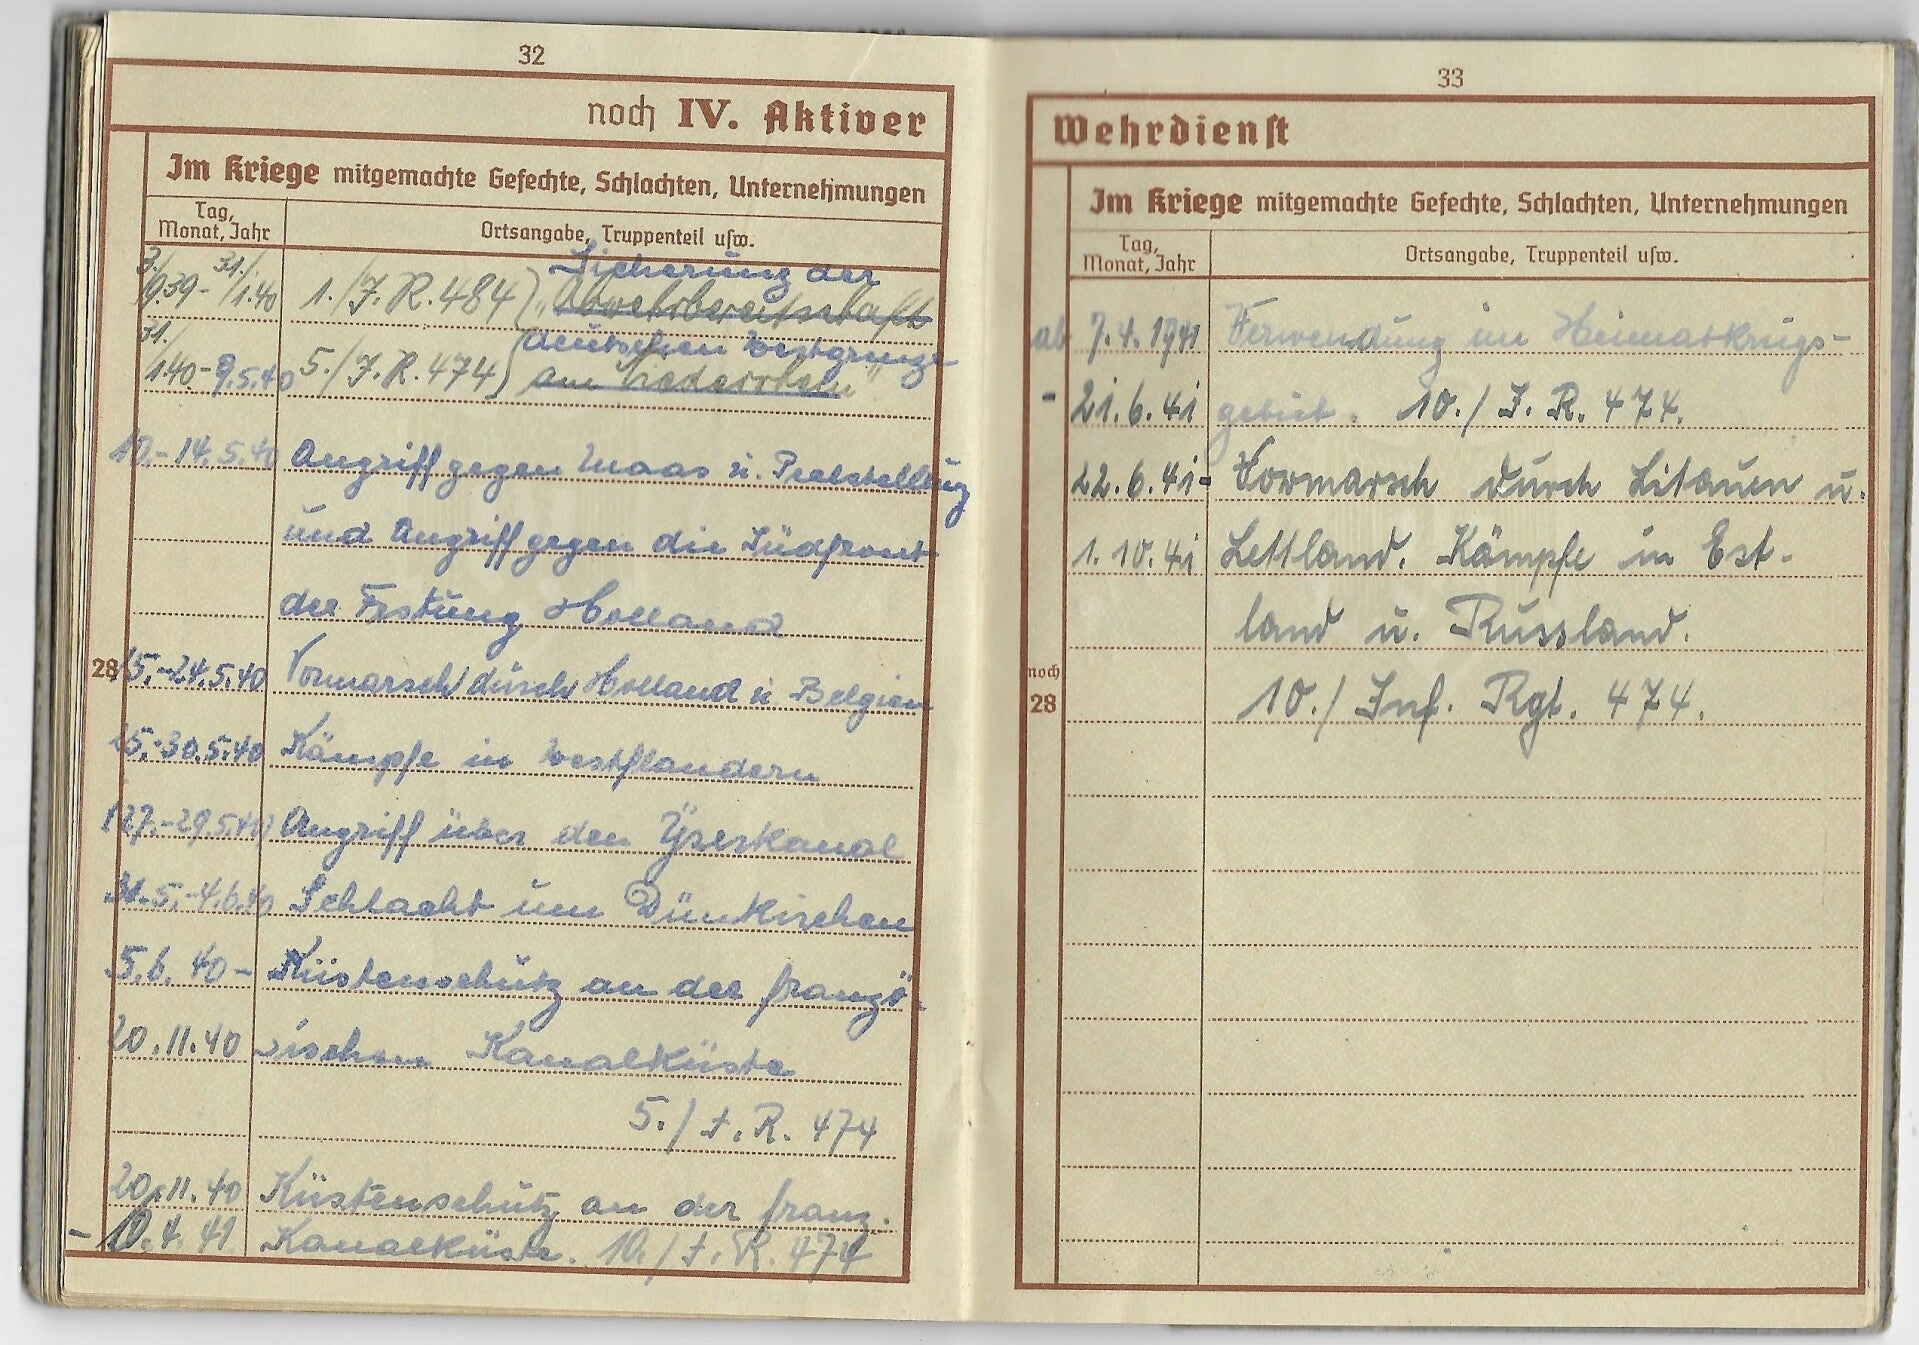 32
noch IV. Aktiver
Im Kriege mitgemachte Gefechte, Schlachten, Unternehmungen
Tag, Monat, Jahr
Ortsangabe, Truppenteil usw.
Sicherung der
3./9.39 - 31./1.40 1./J.R. 484) „Abwehrbereitschaft
deutschen Westgrenze
31./1.40 - 9.5.40 5./J.R. 474) am Niederrhein"
10.-14.5.40 Angriff gegen Maas u. Peelstellung
und Angriff gegen die Südfront
der Festung Holland
28 15.-24.5.40 Vormarsch durch Holland u. Belgien
25.-30.5.40 Kämpfe in Westflandern
27.-29.5.40 Angriff über den Yserkanal
31.5.-4.6.40 Schlacht um Dünkirchen
5.6.40 - Küstenschutz an der franzö-
20.11.40 sischen Kanalküste
5./J.R. 474
20.11.40 Küstenschutz an der franz.
- 10.4.41 Kanalküste. 10./J.R. 474
33
Wehrdienst
Im Kriege mitgemachte Gefechte, Schlachten, Unternehmungen
Tag, Monat, Jahr
Ortsangabe, Truppenteil usw.
ab 7.4.1941 Verwendung im Heimatkriegs-
- 21.6.41 gebiet. 10./J.R. 474.
22.6.41- Vormarsch durch Litauen u.
1.10.41 Lettland. Kämpfe in Est-
land u. Russland.
noch 28 10./Inf. Rgt. 474.